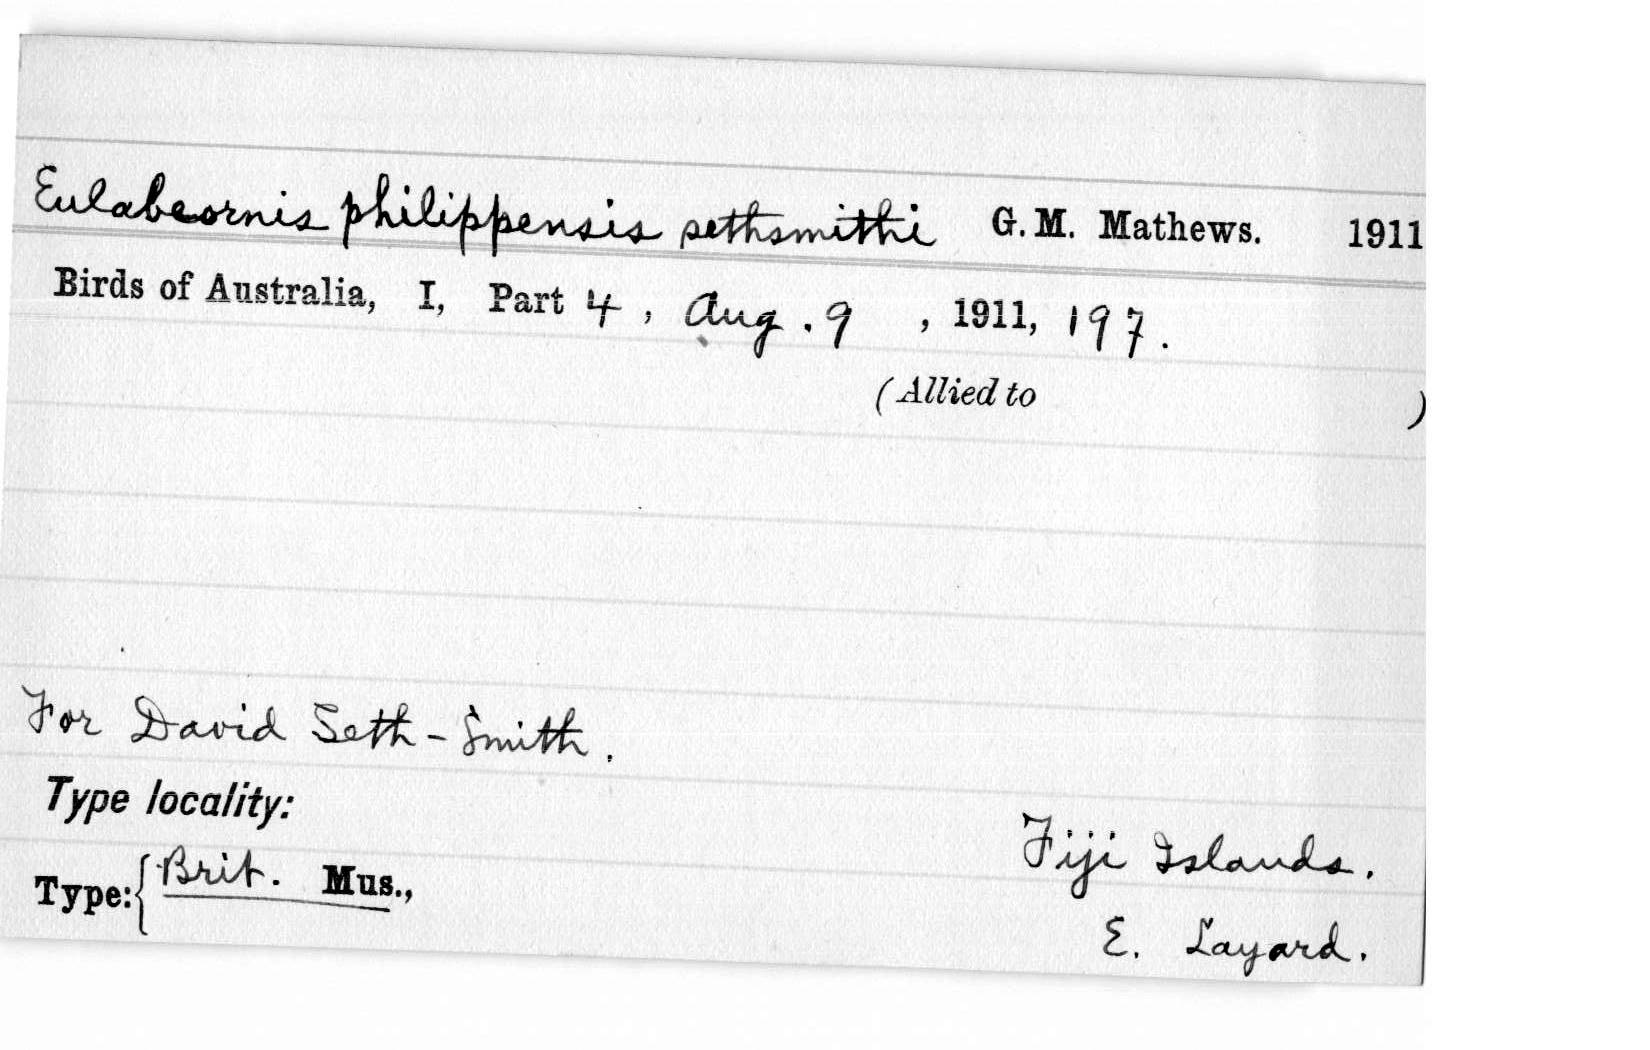 Eulabeornis philippensis sethsmithi G. M. Mathews. 1911
Birds of Australia, I, Part 4, Aug. 9, 1911, 197.
(Allied to )
For David Seth-Smith.
Type locality:
Fiji Islands.
Type: { Brit. Mus.,
E. Layard.